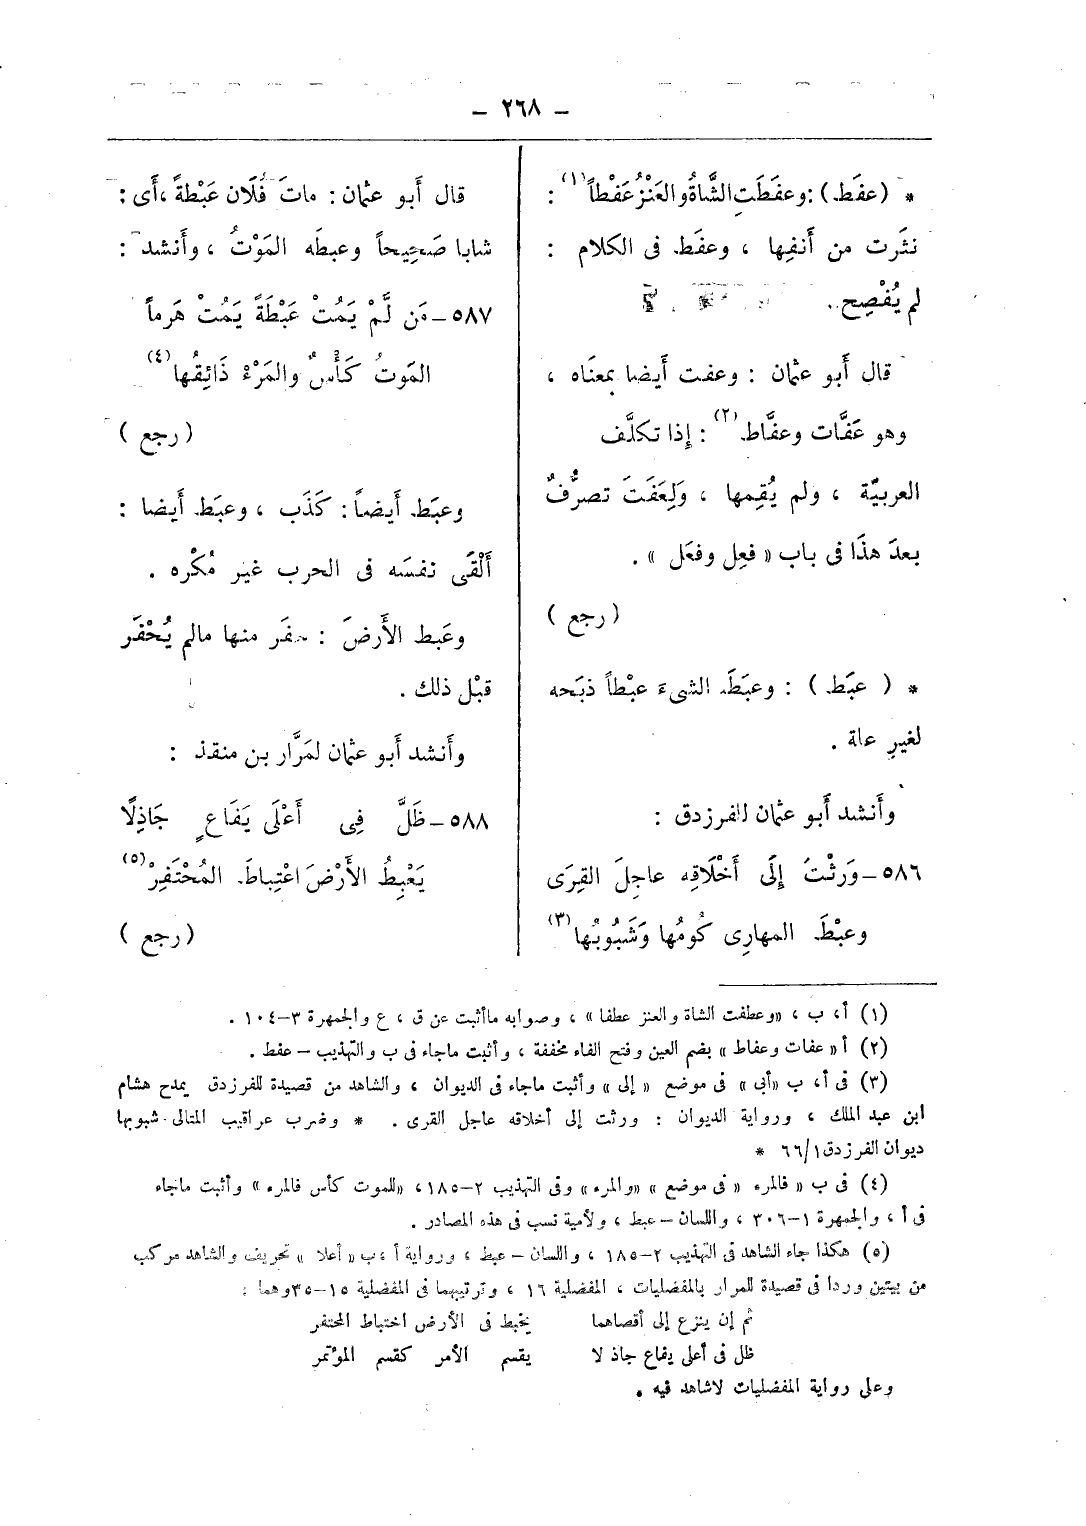 – ٢٦٨ –
* (عفَط) : وعفَطَتِ الشَّاةُ والعَنْزُ عَفْطاً (١) :
نثَرت من أَنفِها ، وعفَط فى الكلام :
لم يُفْصِح.
قال أَبو عثمان : وعفت أَيضا بمعنَاه ،
وهو عَفَّات وعفَّاط (٢) : إِذا تكلَّف
العربيّة ، ولم يُقِمها ، وَلِعَفَتَ تصرُّفٌ
بعدَ هذَا فى باب « فعِل وفعَل » .
( رجع )
* ( عبَط ) : وعبَطَ الشىءَ عبْطاً ذبَحه
لغيرِ علة .
وأَنشد أَبو عثمان للفرزدق :
٥٨٦ – وَرِثْتَ إِلَى أَخْلَاقِه عاجِلَ القِرَى
وعبْطَ المهارِى كُومُها وَشَبُوبُها (٣)
قال أَبو عثمان : ماتَ فُلَان عَبْطةً ، أَى :
شابا صَحِيحاً وعبطَه المَوْتُ ، وأَنشد :
٥٨٧ – مَن لَّمْ يَمُتْ عَبْطَةً يَمُتْ هَرماً
المَوتُ كَأْسٌ والمَرْءُ ذَائِقُها (٤)
( رجع )
وعبَط أَيضاً : كَذَب ، وعبَط أَيضا :
أَلْقَى نفسَه فى الحرب غير مُكْره .
وعَبط الأَرضَ : حفَر منها مالم يُحْفَر
قبْل ذلك .
وأَنشد أَبو عثمان لمَرَّار بن منقذ :
٥٨٨ – ظَلَّ فِى أَعْلَى يَفَاعٍ جَاذِلًا
يَعْبِطُ الأَرْضَ اعْتِباطَ المُحْتَفِرْ (٥)
( رجع )
(١) أ، ب ، «وعطفت الشاة والعنز عطفا» ، وصوابه ماأثبت عن ق ، ع والجمهرة ٣–١٠٤ .
(٢) أ « عفات وعفاط » بضم العين وفتح الفاء مخففة ، وأثبت ماجاء فى ب والتهذيب – عفط .
(٣) فى أ، ب «أبى» فى موضع « إلى » وأثبت ماجاء فى الديوان ، والشاهد من قصيدة للفرزدق يمدح هشام
ابن عبد الملك ، ورواية الديوان : ورثت إلى أخلاقه عاجل القرى . * وضرب عراقيب المتالى شبوبها
ديوان الفرزدق ٦٦/١ *
(٤) فى ب « فالمرء « فى موضع » «والمرء» وفى التهذيب ٢–١٨٥، «للموت كأس فالمرء» وأثبت ماجاء
فى أ ، والجمهرة ١–٣٠٦ ، واللسان – عبط ، ولأمية نسب فى هذه المصادر .
(٥) هكذا جاء الشاهد فى التهذيب ٢–١٨٥ ، واللسان – عبط ، ورواية أ ، ب « أعلا » تحريف والشاهد مركب
من بيتين وردا فى قصيدة للمرار بالمفضليات ، المفضلية ١٦ ، وترتيبهما فى المفضلية ١٥–٣٥ وهما :
ثم إن ينزع إلى أقصاهما يخبط فى الأرض اختباط المحتفر
ظل فى أعلى يفاع جاذ لا يقسم الأمر كقسم المؤتمر
وعلى رواية المفضليات لاشاهد فيه .